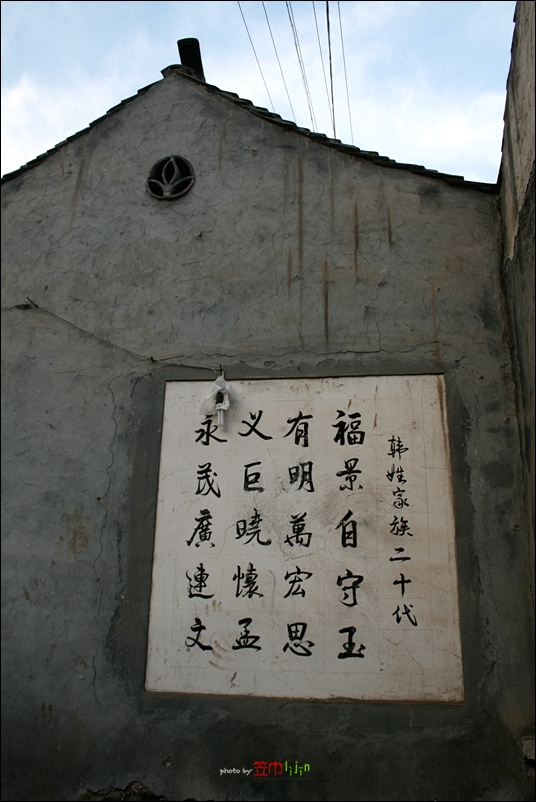 韩姓家族二十代
福景自守玉
有明萬宏思
义巨曉懷孟
永茂廣連文
photo by 笠巾lijin